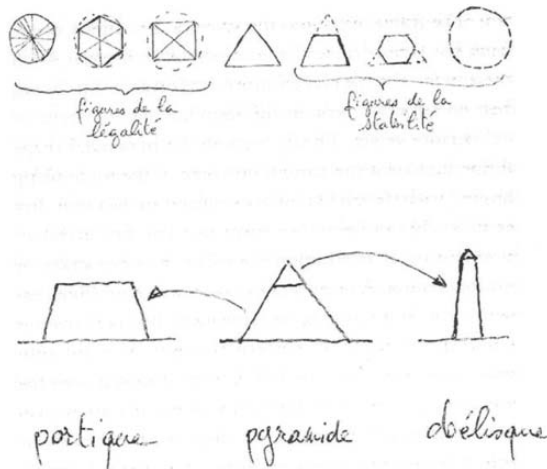 figures de la
légalité
figures de la
stabilité
portique
pyramide
obélisque